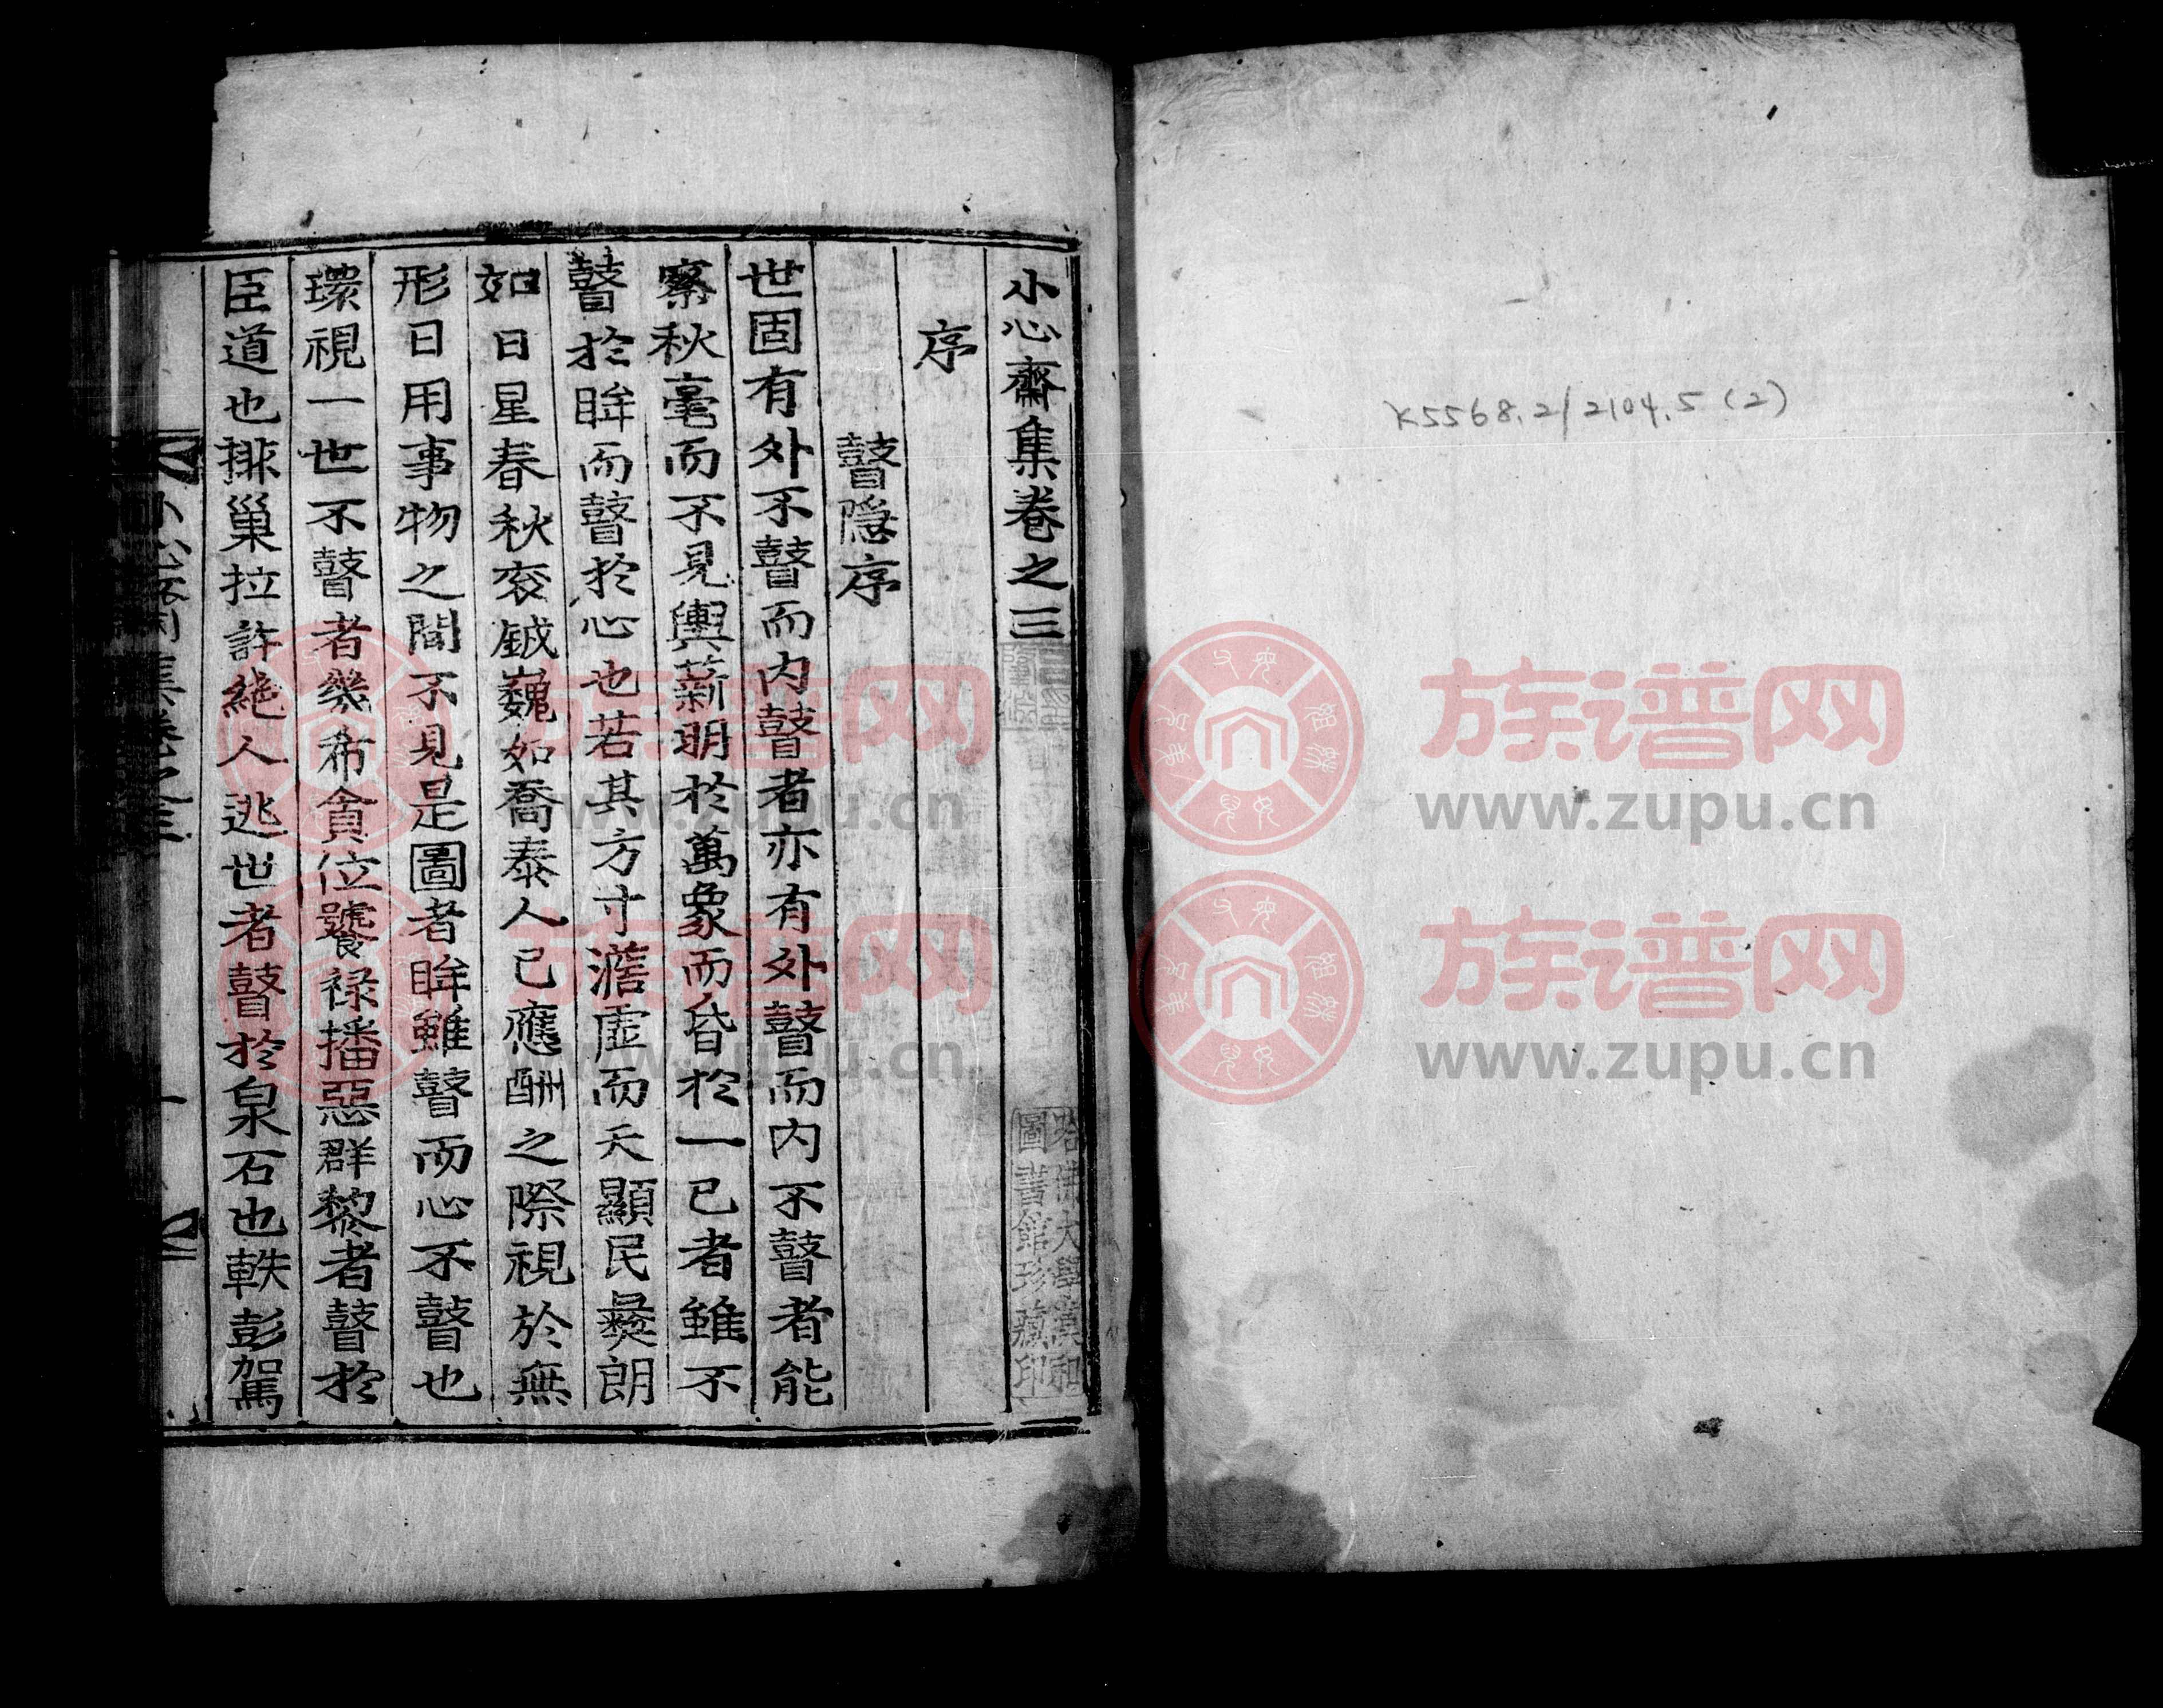 K5568.2/2104.5(2)
小心齋集卷之三
序
瞽隠序
世固有外不瞽而内瞽者亦有外瞽而内不瞽者能
察秋毫而不見輿薪明於萬象而昏於一己者雖不
瞽於眸而瞽於心也若其方寸澹虛而天顯民彝朗
如日星春秋袞鉞巍如喬泰人己應酬之際視於無
形日用事物之間不見是圖者眸雖瞽而心不瞽也
環視一世不瞽者幾希貪位饕祿播惡群黎者瞽於
臣道也排巢拉許絶人逃世者瞽於泉石也軼彭駕
小心齋集卷之三
一
哈佛大學漢和
圖書館珍藏印
族谱网
www.zupu.cn
族谱网
www.zupu.cn
族谱网
www.zupu.cn
族谱网
www.zupu.cn